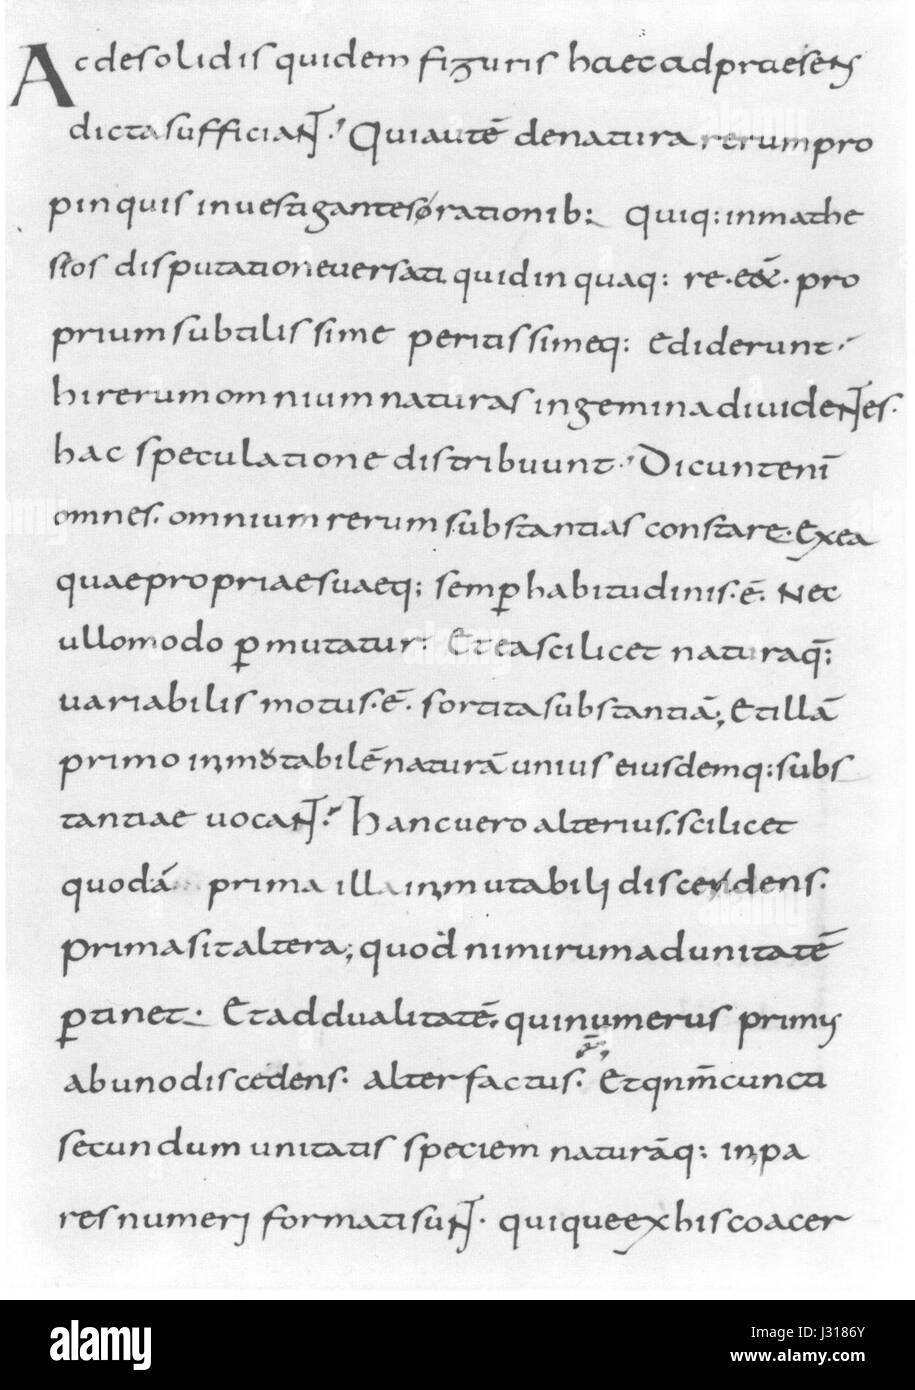 Ac de solidis quidem figuris haec ad praesenꞇ̄
dicta sufficiant. Qui autē de natura rerum pro
pinquis investigantes rationib: Quiq: in mathe
seos disputatione versati quid in quaq: re. eēt. pro
prium subtilissime peritissimeq: ediderunt.
hi rerum omnium naturas in gemina dividentes.
hac speculatione distribuunt. Dicunt enī
omnes. omnium rerum substantias constare. Ex ea
quae propriae suaeq; semꝑ habitudinis. ē. Nec
ullo modo ꝑmutatur. Et ea scilicet naturaq̄;
variabilis motus. ē. sortita substantiā; Et illā
primo inmutabilē naturā unius eiusdemq: subs
tantiae vocant. hanc vero alterius. scilicet
quod a prima illa inmutabili discendens.
prima sit altera; quod nimirum ad unitatē
ꝑtinet. Et ad dualitatē. qui numerus primus
ab uno discedens. alter factus. Et qnm̄ cuncti
secundum unitatis speciem naturāq: inpa
res numeri formati sunt. quique ex his coacer
alamy
J3186Y
www.alamy.com